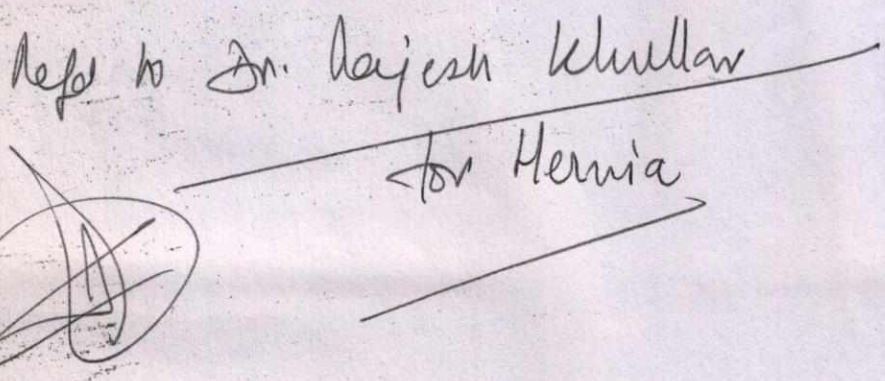 Refd to Dr. Rajesh Khullar
for Hernia